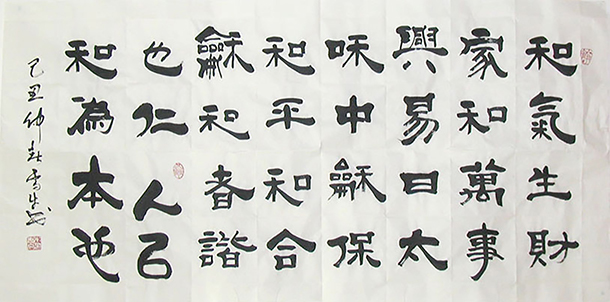 和氣生財
家和萬事
興易曰太
咊中龢保
和平和合
龢和者諧
也仁人
和為本也
己丑仲春